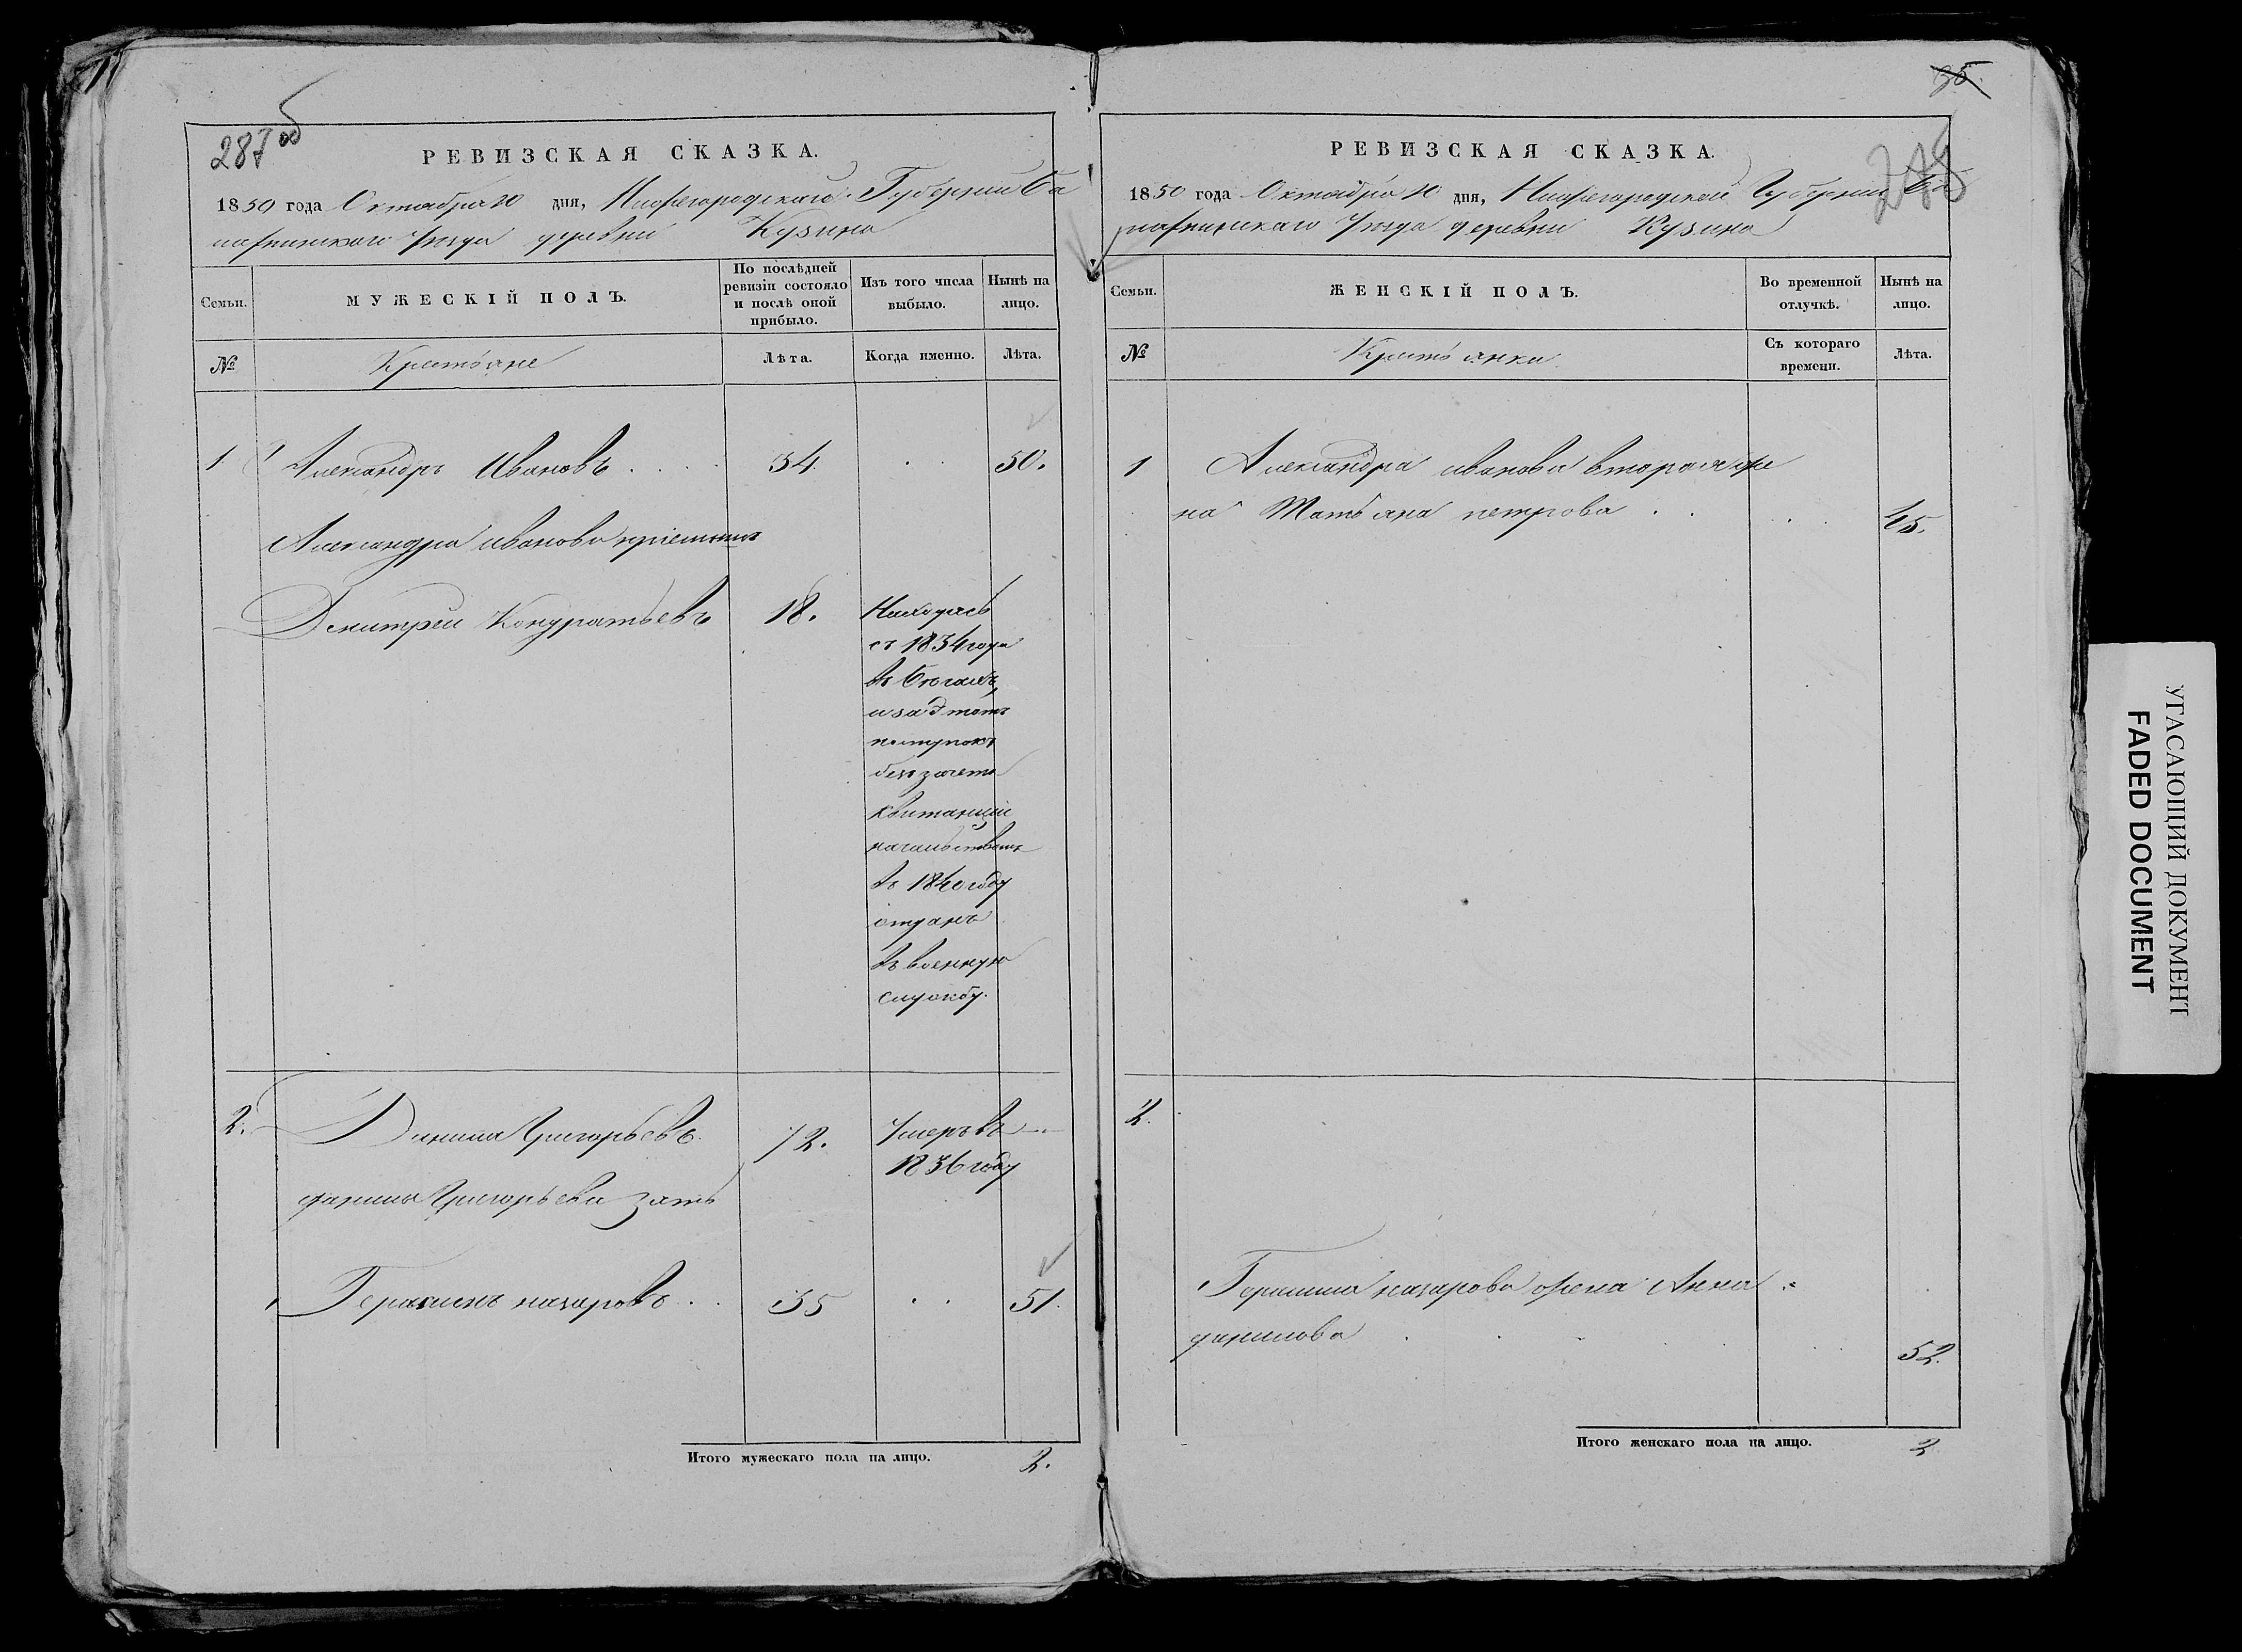 287 об
РЕВИЗСКАЯ СКАЗКА.
1850 года Октября 20 дня, Нижегородской Губернии Ба
лахнинскаго Уезда деревни Кузина
Семьи.
МУЖЕСКІЙ ПОЛЪ.
По послѣдней
ревизіи состояло
и послѣ оной
прибыло.
Изъ того числа
выбыло.
Нынѣ на
лицо.
№
Крестьяне
Лѣта.
Когда именно.
Лѣта.
1 Александръ Ивановъ . . . . 34. . . 50.
Александра иванова пріемышъ
Дмитрей Кондратьевъ 18. Находясь
съ 1834 года
въ бегахъ,
и за этотъ
поступокъ
безъ зачета
квитанціи
начальствомъ
въ 1840 году
отданъ
въ военную
службу.
2. Данила Григорьевъ. 72. Умеръ въ
1836 году
данилы Григорьева зять
Герасимъ назаровъ . . 35 . . 51.
Итого мужескаго пола на лицо. 2.
95.
278
РЕВИЗСКАЯ СКАЗКА.
1850 года Октября 20 дня, Нижегородской Губернии Ба
лахнинскаго Уезда деревни Кузина
Семьи.
ЖЕНСКІЙ ПОЛЪ.
Во временной
отлучкѣ.
Нынѣ на
лицо.
№
Крестьянки
Съ котораго
времени.
Лѣта.
1 Александра иванова вторая же
на Татьяна петрова . . . . 45.
2.
Герасима назарова жена Анна
данилова . . . . . 52.
Итого женскаго пола на лицо. 2
УГАСАЮЩИЙ ДОКУМЕНТ
FADED DOCUMENT